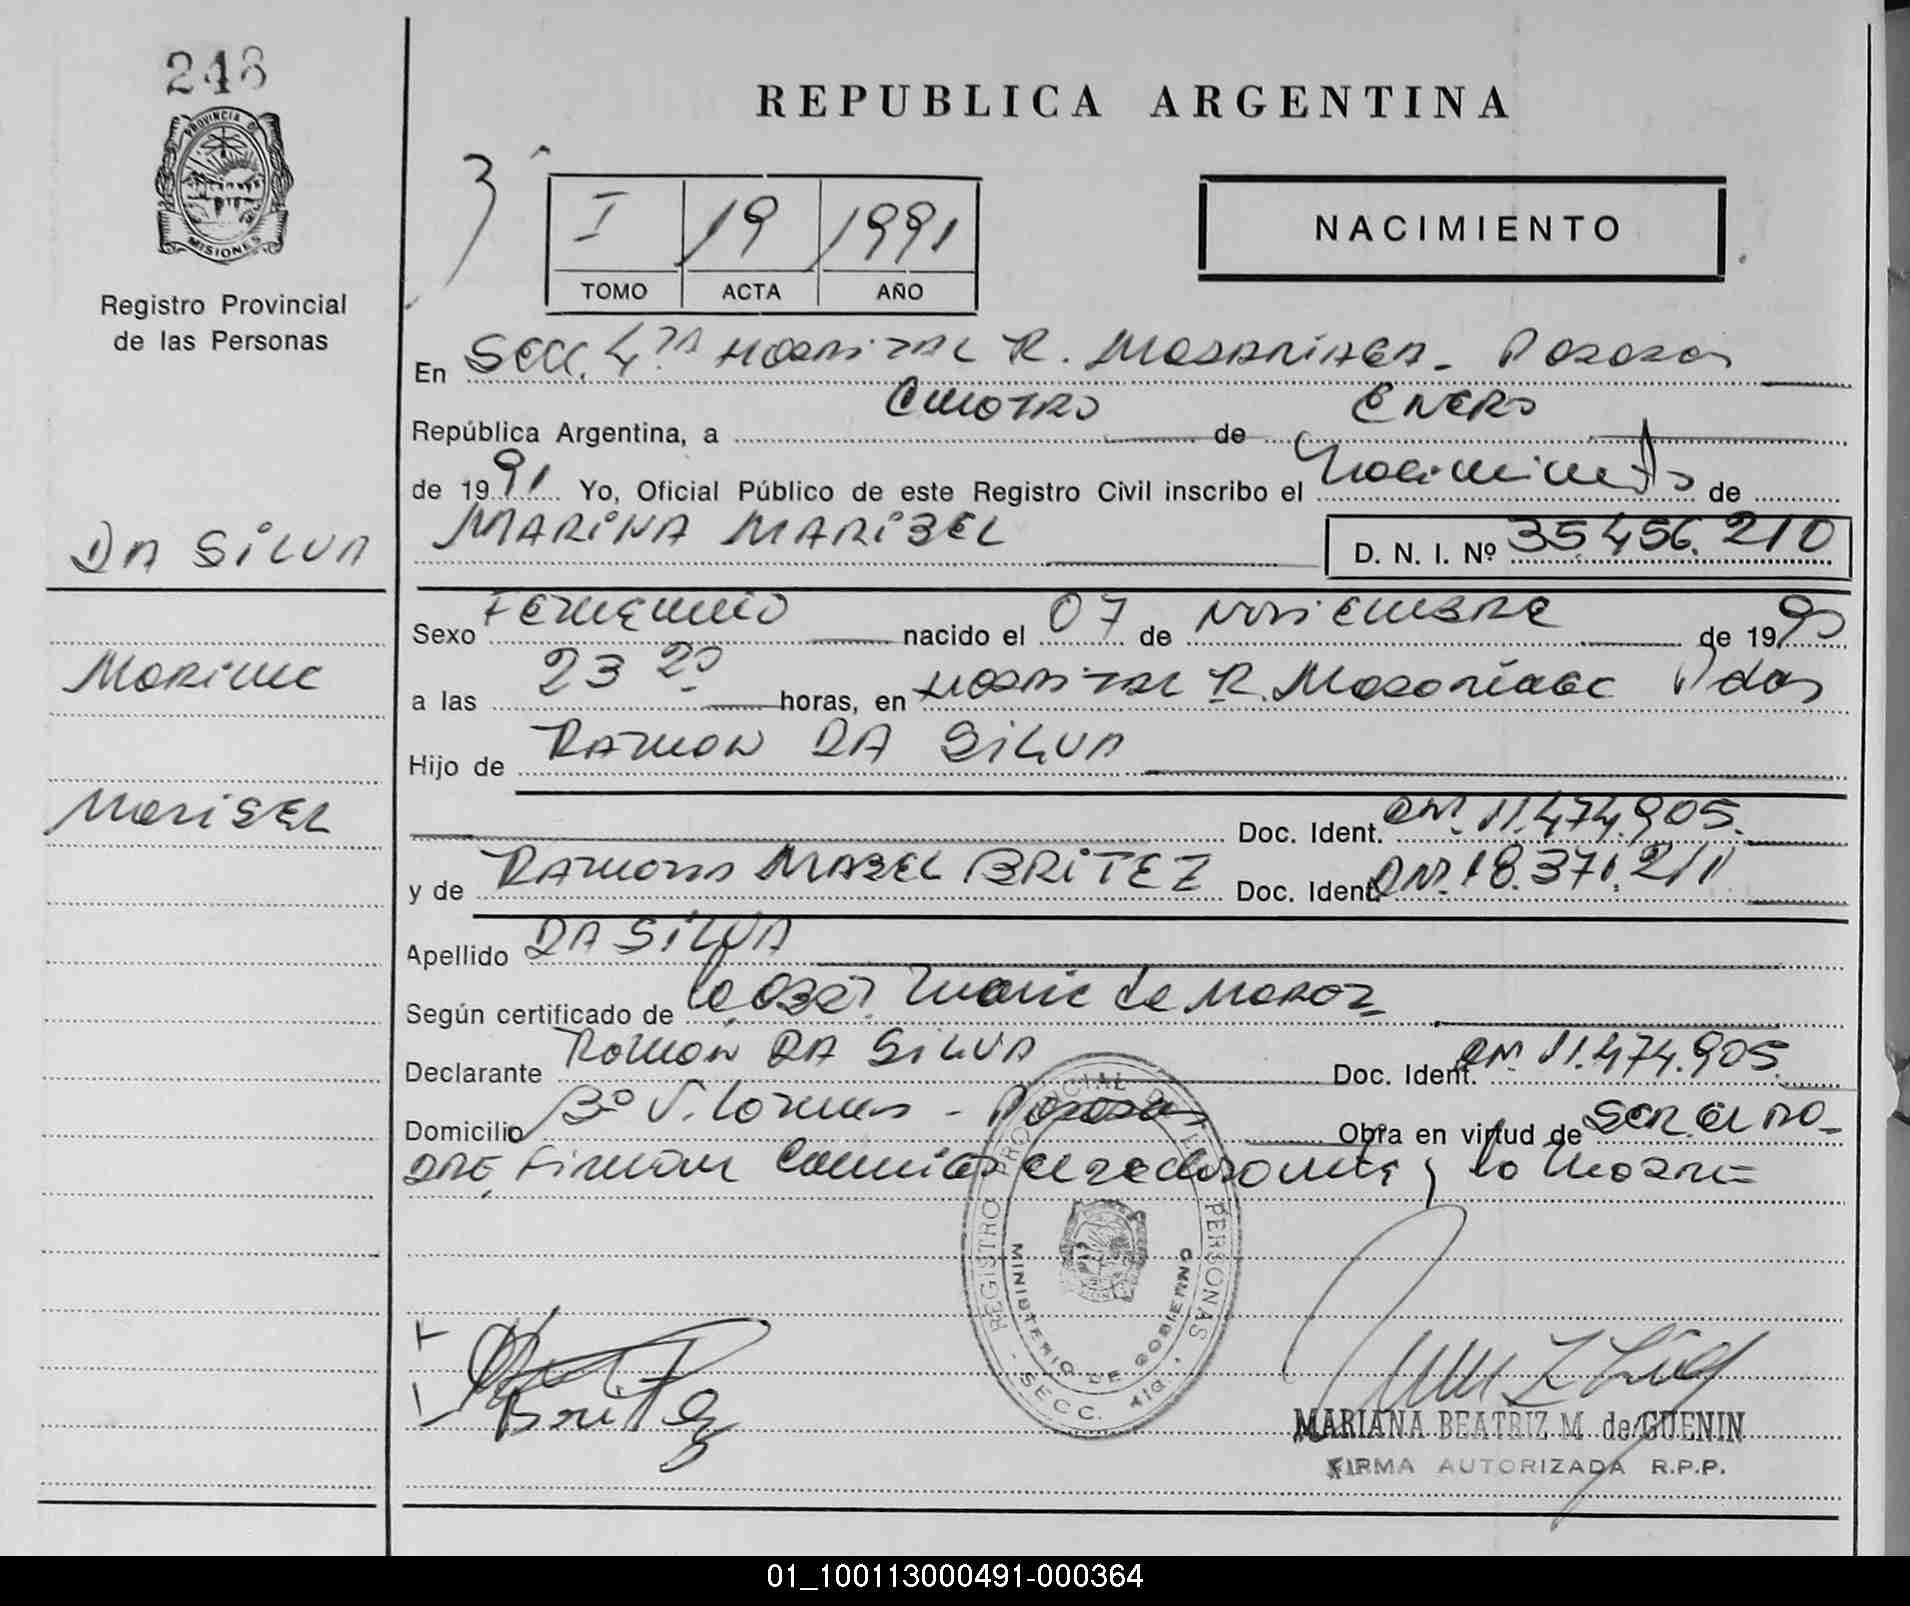 248
PROVINCIA DE
MISIONES
Registro Provincial
de las Personas
REPUBLICA ARGENTINA
3
I 19 1991
TOMO ACTA AÑO
NACIMIENTO
En Secc. 4ta Hospital R. Madariaga - Posadas
República Argentina, a Cuatro de Enero
de 1991 Yo, Oficial Público de este Registro Civil inscribo el Nacimiento de
MARINA MARISEL D. N. I. Nº 35.456.210
DA SILVA
Sexo Femenino nacido el 07 de Noviembre de 1990
a las 23 20 horas, en Hospital R. Madariaga Pdas
Marina
Hijo de RAMON DA SILVA
Marisel
Doc. Ident. DNI. 11.474.905.
y de RAMONA MABEL BRITEZ Doc. Ident. DNI. 18.371.211
Apellido DA SILVA
Según certificado de la Obst. Maria de
Declarante Ramon DA SILVA Doc. Ident. DNI 11.474.905.
Domicilio Bº V. Lormes - Posadas Obra en virtud de ser el Pa-
dre, Firman Conmigo el declarante y la Madre
Britez
REGISTRO PROVINCIAL DE LAS PERSONAS
MINISTERIO DE GOBIERNO
SECC. 4ta.
MARIANA BEATRIZ M. de GUENIN
FIRMA AUTORIZADA R.P.P.
01_100113000491-000364